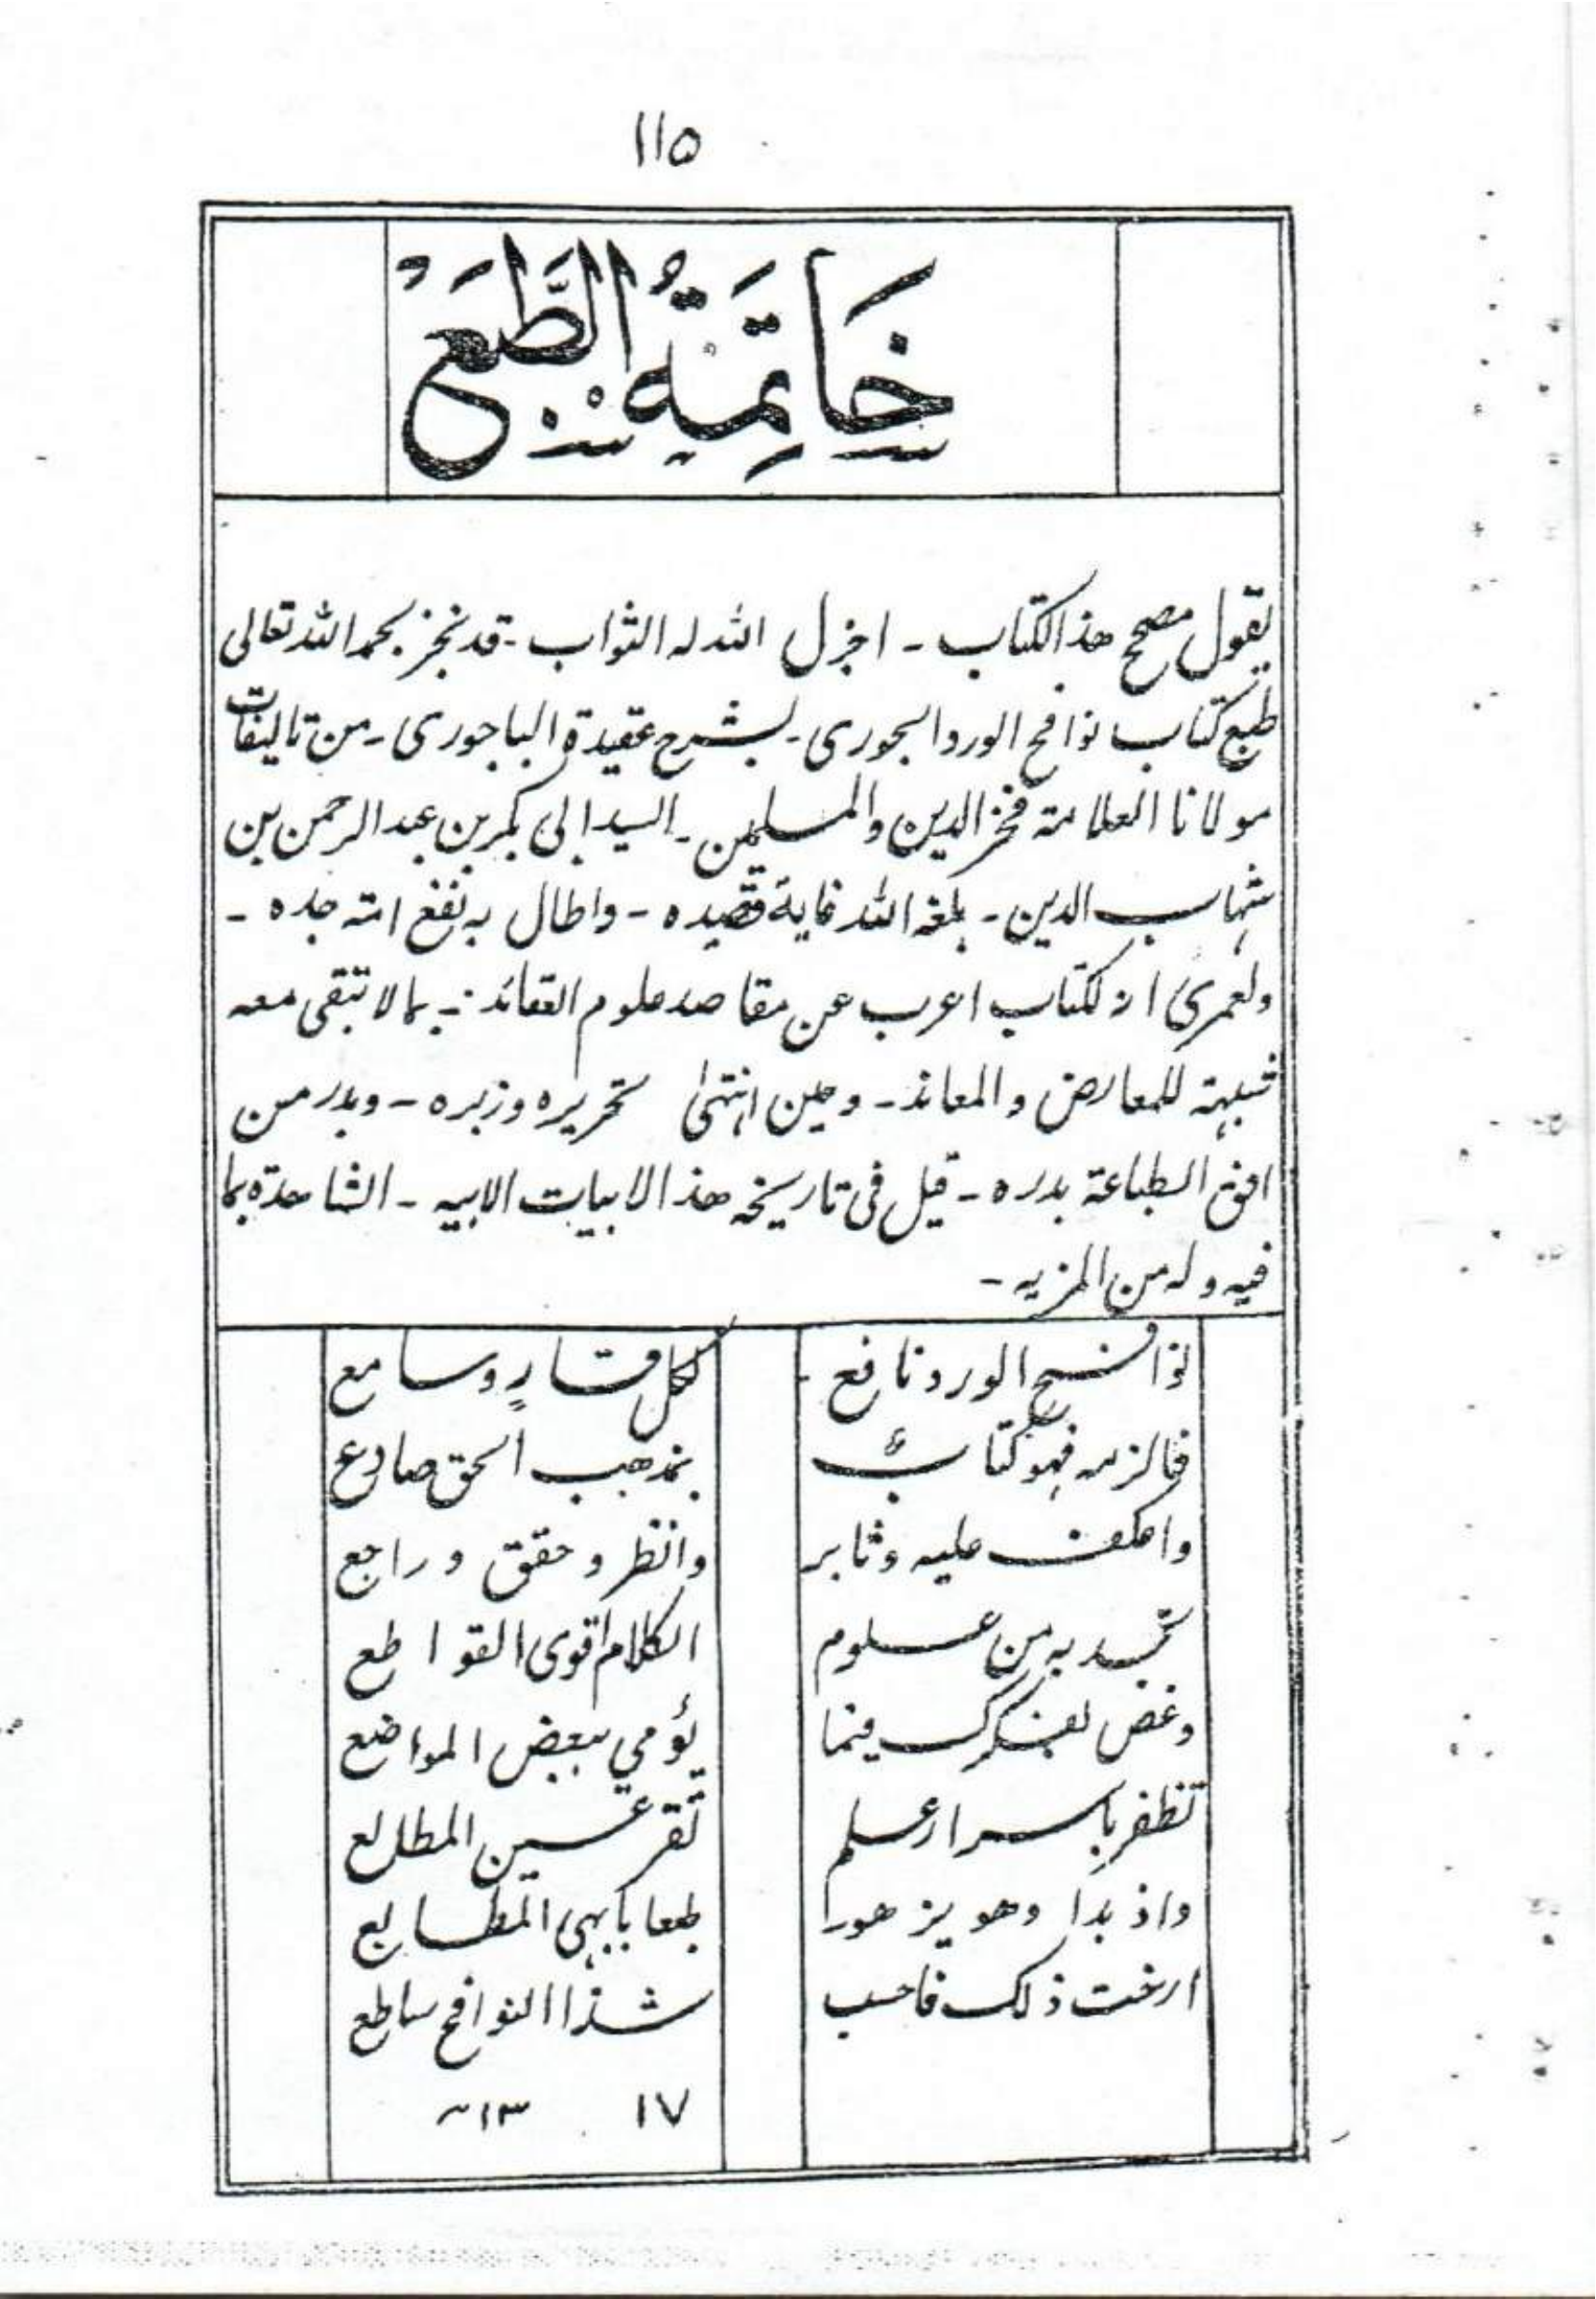 ١١٥
خَاتِمَةُ الطَّبَعْ
يقول مصحح هذالكتاب - اجزل الله له الثواب - قد نجز بحمد الله تعالى
طبع كتاب نوافح الورد الجورى - بشرح عقيدة الباجورى - من تاليفات
مولانا العلامة فخر الدين والمسلمين - السيد ابى بكر بن عبد الرحمن بن
شهاب الدين - بلغه الله غاية قصيده - واطال به نفع امة جده -
ولعمرى انه لكتاب اعرب عن مقاصد علوم العقائد - بما لا تبقى معه
شبهة للمعارض والمعاند - وحين انتهىٰ تحريره وزبره - وبدر من
افق الطباعة بدره - قيل فى تاريخه هذالابيات الابيه - الشاهدة بما
فيه وله من المزيه -
نوافح الورد نافع لكل قارٍ وسامع
فالزمه فهو كتابٌ بمذهب الحق صادع
واعكف عليه وثابر وانظر وحقق وراجع
تجد به من علوم الكلام اقوى القواطع
وغص بفكرك فيما يؤمي ببعض المواضع
تظفر باسرار علم تقر عين المطالع
واذ بدا وهو يزهو طبعا بابهى المطابع
ارخت ذلك فاحسب شذا النوافح ساطع
١٧ ١٣